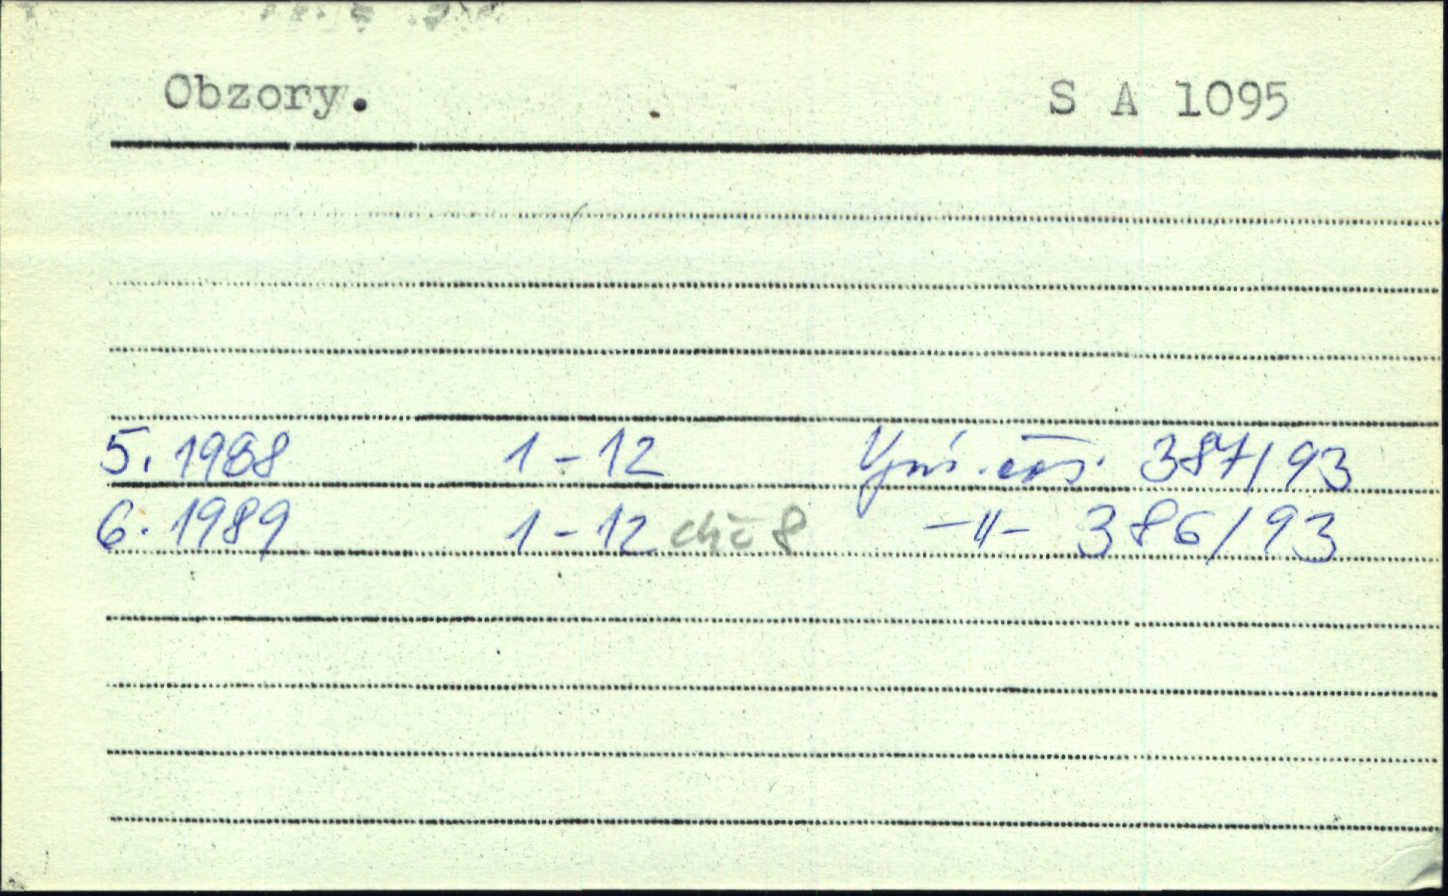 Obzory. S A 1095
5. 1988 1-12 čas. 387/93
6. 1989 1-12 chč 8 -"- 386/93